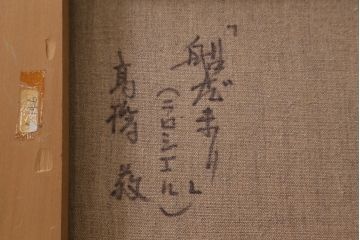 「船だまり」
（ニロミエル）
高橋